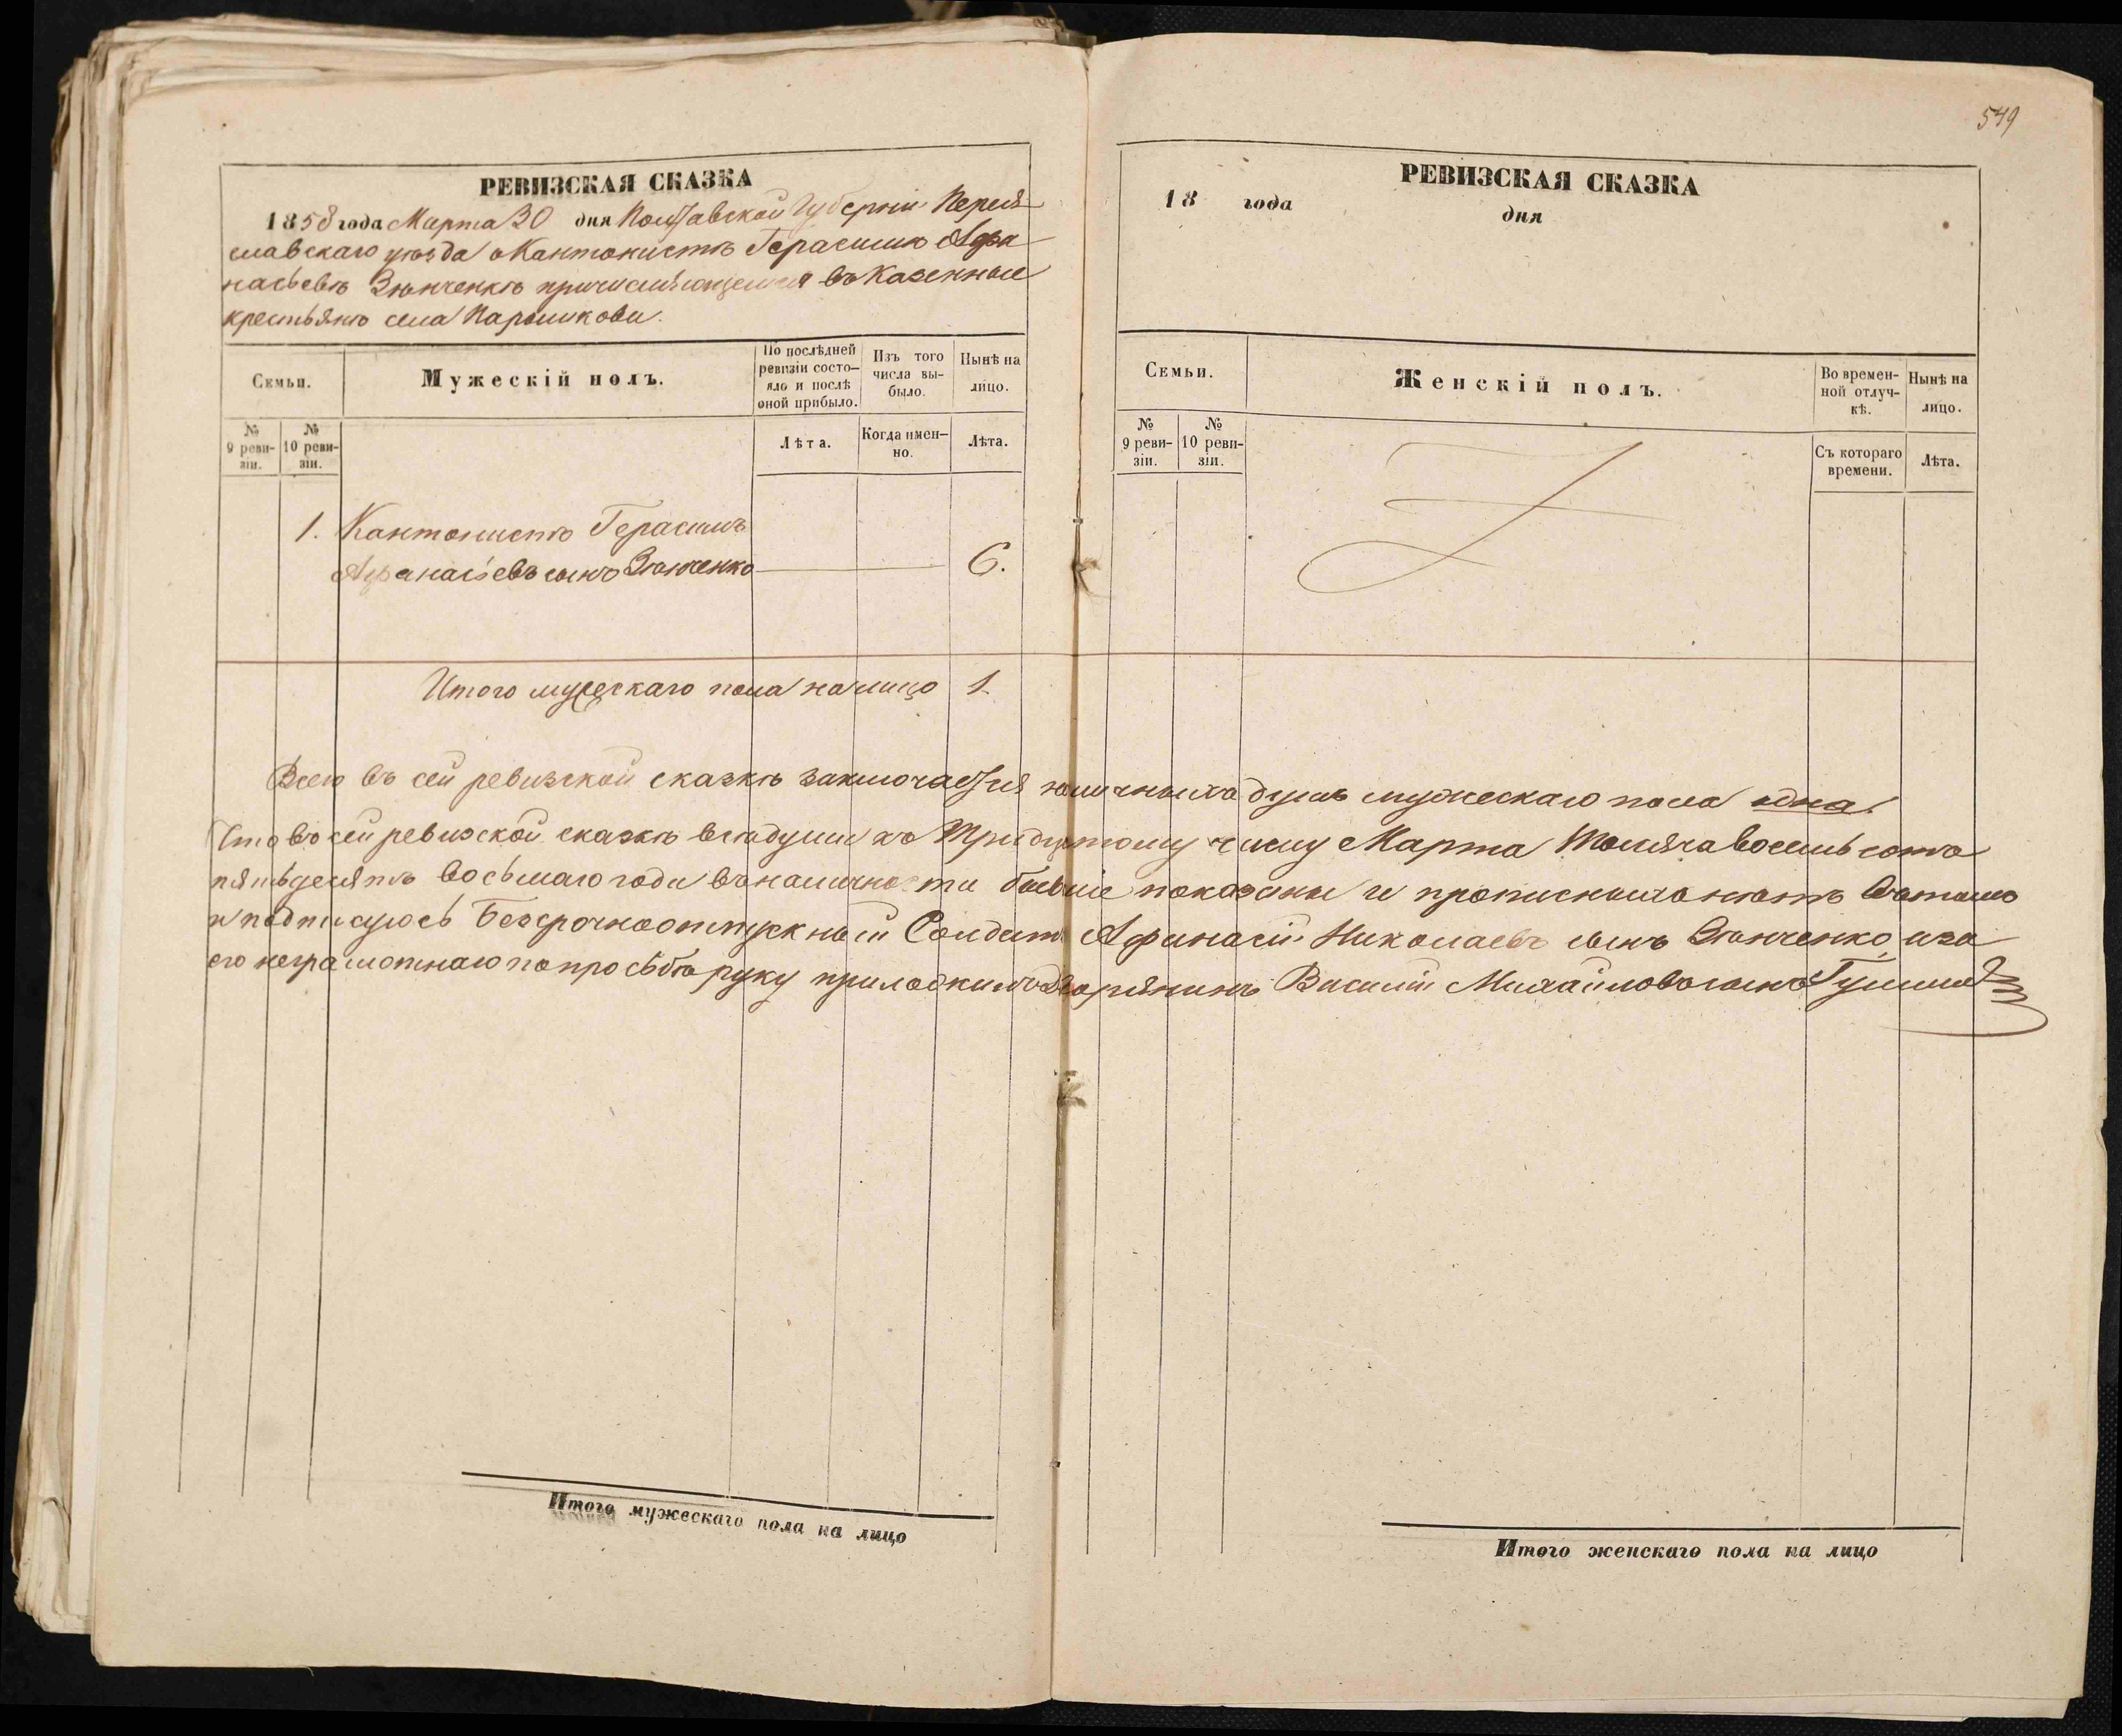 549
РЕВИЗСКАЯ СКАЗКА
1858 года Марта 30 дня Полтавской Губерніи Перея-
славскаго уѣзда о Кантонистѣ Герасимѣ Афа-
насьевѣ Зюнченкѣ причисляющемся въ Казенные
крестьяне села Паришкова.
Семьи.
Мужескій полъ.
По послѣдней ревизіи состо-
яло и послѣ оной прибыло.
Изъ того числа вы-
было.
Нынѣ на лицо.
№ 9 реви-
зіи.
№ 10 реви-
зіи.
Лѣта.
Когда имен-
но.
Лѣта.
1. Кантонистъ Герасимъ
Афанасьевъ сынъ Зюнченко 6.
Итого мужескаго пола на лицо 1.
РЕВИЗСКАЯ СКАЗКА
18 года дня
Семьи.
Женскій полъ.
Во времен-
ной отлуч-
кѣ.
Нынѣ на лицо.
№ 9 реви-
зіи.
№ 10 реви-
зіи.
Съ котораго времени.
Лѣта.
Всего въ сей ревизской сказкѣ заключается наличныхъ душъ мужескаго пола одна.
Что въ сей ревизской сказкѣ всѣ души къ Тридцатому числу Марта Тысяча восемь сотъ
пятьдесятъ восьмаго года въ наличности бывшіе показаны и прописныхъ нѣтъ въ томъ
и подписуюсь Безсрочноотпускный Солдатъ Афанасій Николаевъ сынъ Зюнченко, а за
его неграмотнаго по просьбѣ руку приложилъ Дворянинъ Василій Михайловъ сынъ
Итого мужескаго пола на лицо
Итого женскаго пола на лицо